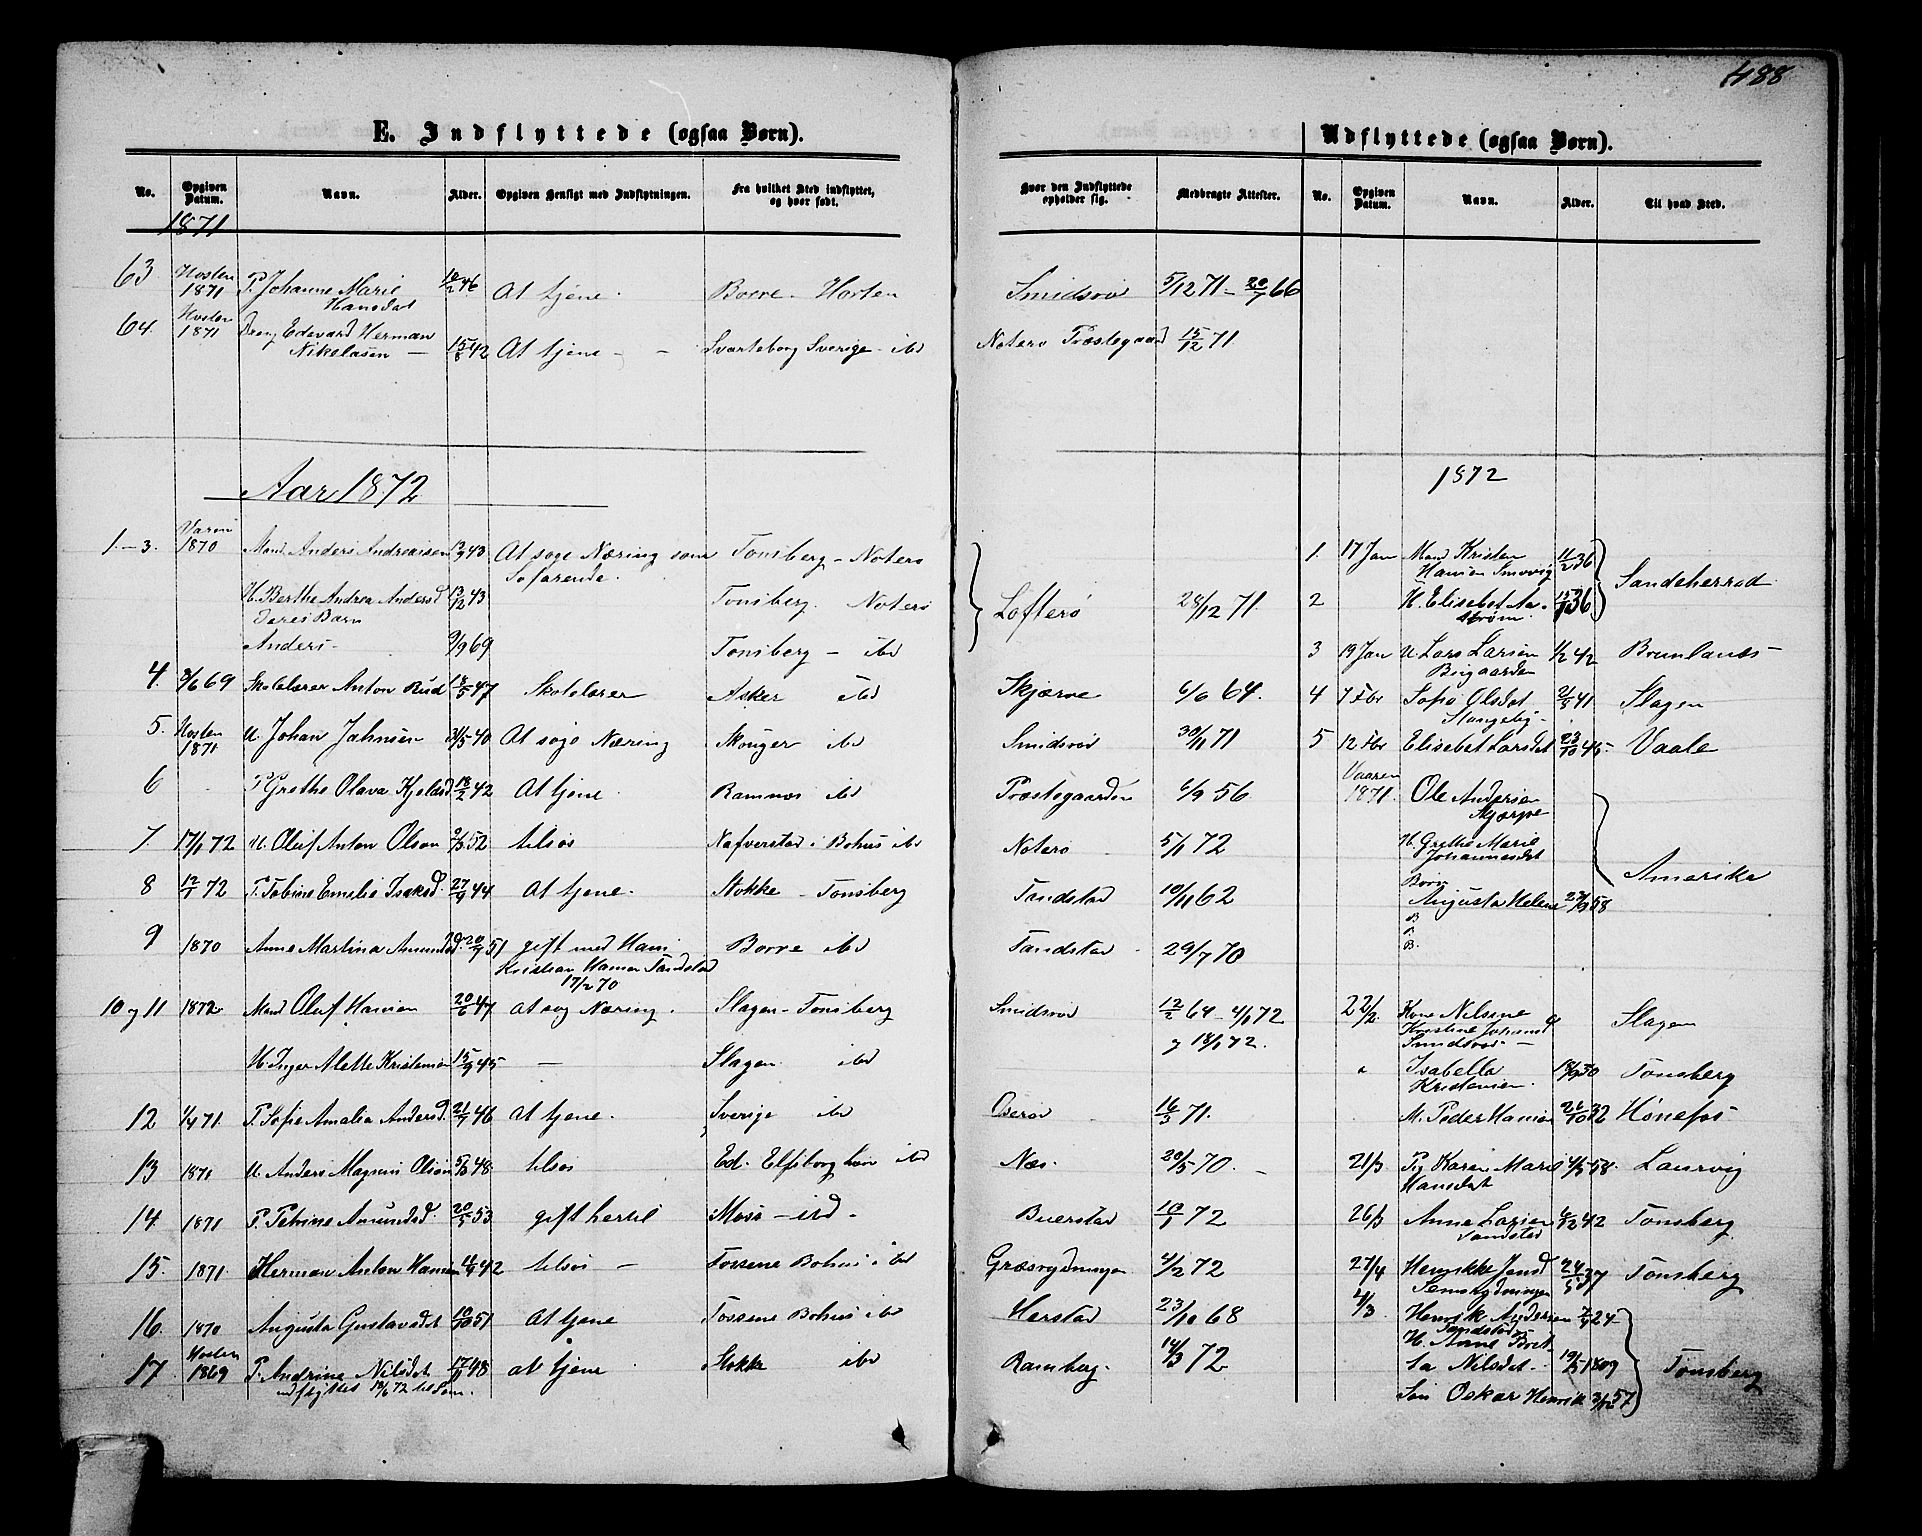 488
E. Indflyttede (ogsaa Børn).
No. Opgiven Datum. Navn. Alder. Opgiven Hensigt med Indflytningen. Fra hvilket Sted indflyttet, og hvor født.
1871
63 Høsten 1871 P. Johanne Marie Hansdat 12/2 46 At tjene. Borre - Horten
64. Høsten 1871 Dreng Edevard Herman Nikolasen - 15/8 42 At tjene - - Svarteborg Sverige - ibd
Aar 1872
1.-3. Vaaren 1870 Mand Anders Andreasen 43 At søge Næring som Søfarende. Tonsberg - Noterø
H. Berthe Andrea Andersd 13/12 43 Tonsberg. Noterø
Deres Barn
Anders - 9/9 69 Tonsberg - ibd
4. 69 Skolelærer Anton Rud 18/5 47 Skolelærer Asker ibd
5. Høsten 1871 U. Johan Jahnsen 31/5 40 At søge Næring Skouger ibd
6 P Grethe Olava Kjeldsd 18/2 42 At tjene. Ramnes ibd
7 17/1 72 U. Oluf Anton Olsen 52 tilsøs Nafverstad i Bohus ibd
8 12/1 72 P. Tobine Emelie Isaksd. 27/9 44 At tjene. Stokke - Tonsberg
9 1870 Anne Martina Amundsd. 20/9 51 gift med Hans Kristian Hansen Tandstad 17/2 70 Borre ibd
10 og 11 1872 Mand Oluf Hansen 20/6 47 at søg Næring. Slagen - Tonsberg
H. Inger Alette Kristensen 15/9 45 - Slagen ibd
12 71. P. Sofie Amalia Andersd. 21/7 46 at tjene. Sverige ibd
13 1871 U. Anders Magnus Olsen 48. tilsøs Ed. Elfsborg län ibd
14. 1871 P. Petrine Amundsd. 20/5 53 gift hertil Moss - ibd -
15. 1871. Herman Anton Hansen 42 tilsøs - Tossene Bohus i ibd
16. 1870 Augusta Gustavsdat 10/10 51 At tjene Tossene Bohus ibd
17. Høsten 1869 P. Andrine Nilsdat 17/11 48 at tjene Stokke ibd
udflyttet 72 til Sem.
Udflyttede (ogsaa Børn).
Hvor den Indflyttede opholder sig. Medbragte Attester. No. Opgiven Datum. Navn. Alder. Til hvad Sted.
Smidsrød 5/12 71 - 20/7 66
Noterø Præstegaard 15/12 71.
1872
Lofterø 28/12 71.
Skjærve 6/6 64.
Smidsrød 30/11 71
Præstegaarden 6/9 56
Noterø 5/1 72
Tandstad 10/11 62
Tandstad 29/7 70
Smidsrød 12/2 64 - 72
og 72.
Oserød 16/3 71.
Næs. 20/5 70. -
Buerstad 10/1 72
Græsrydningen 4/2 72
Herstad 23/10 68
Ramberg. 14/3 72
1. 17 Jan Mand Kristen Hansen Smovig 11/2 36 Sandeherred
2 H. Elisebet Aastrøm. 15/7 36
3 19 Jan U. Lars Larsen Bugaarden 1/2 42 Brunlanæs -
4 7 Fbr Sofie Olsdat Stangeby - 41 Slagen
5 12 Fbr Elisebet Larsdat 23/10 46 - Vaale
Vaaren 1871. Ole Andersen Skjærve Amerika
H. Grethe Marie Johannesdat
Børn
Augusta Helene 27/9 58
B
B.
22/2. Kone Nilsine Kristine Johansd Smidsrød - Slagen
Isabella Kristensen. 30 Tonsberg
M. Peder Hansen 26/10 32 Hønefos
21/3 Pig Karen Marie Hansdat 58. Laurvig
26/3 Anne Larsen Tandstad 42 Tonsberg
27/4 Henrikke Jensd Semsrydningen 24/5 37 Tonsberg
4/3 Henrik Andersen Tandstad 24
H. Anne Bret
ta Nilsdat - 19/5 1809 Tonsberg
Søn Oskar Henrik 3/12 57